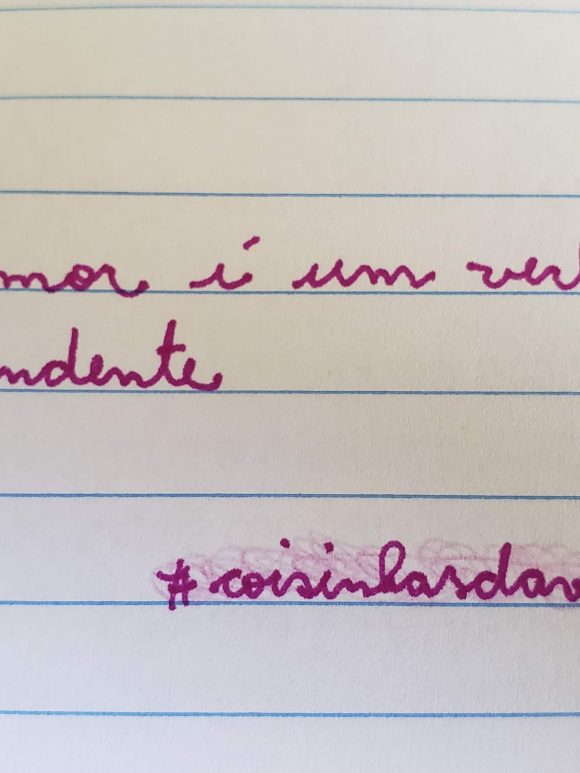 mor é um ver
ndente
#coisinhasdav